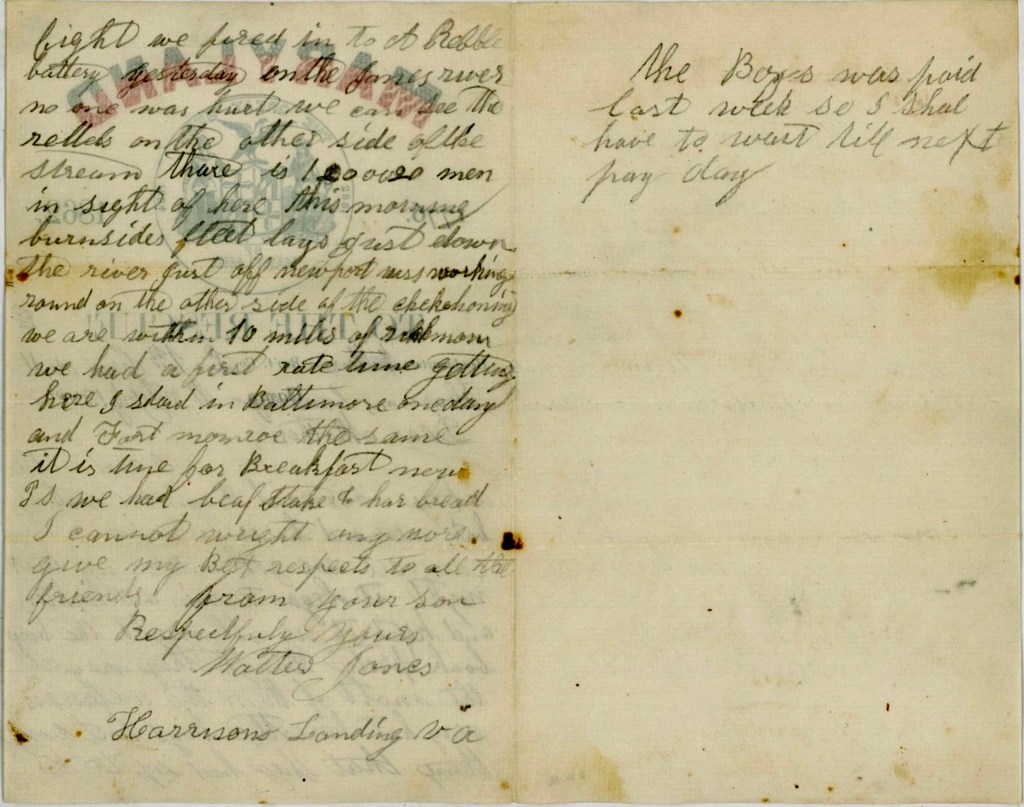 fight we fired in to A Rebble
battery yesterday on the james river
no one was hurt we can see the
rebbels on the other side of the
stream thare is 100000 men
in sight of here this morning
burnsides fleet lays just down
the river just off newport nuss working
round on the other side of the chekehoning
we are within 10 miles of richmon
we had a first rate time getting
here I staid in Baltimore one day
and Fort monroe the same
it is time for Breakfast now
PS we had beaf stake & har bread
I cannot wright any more
give my Best respects to all the
friends from your son
Respectfuly Yours
Walter Jones
Harrisons Landing va
the Boys was paid
last week so I shal
have to wait till next
pay day
MARYLAND